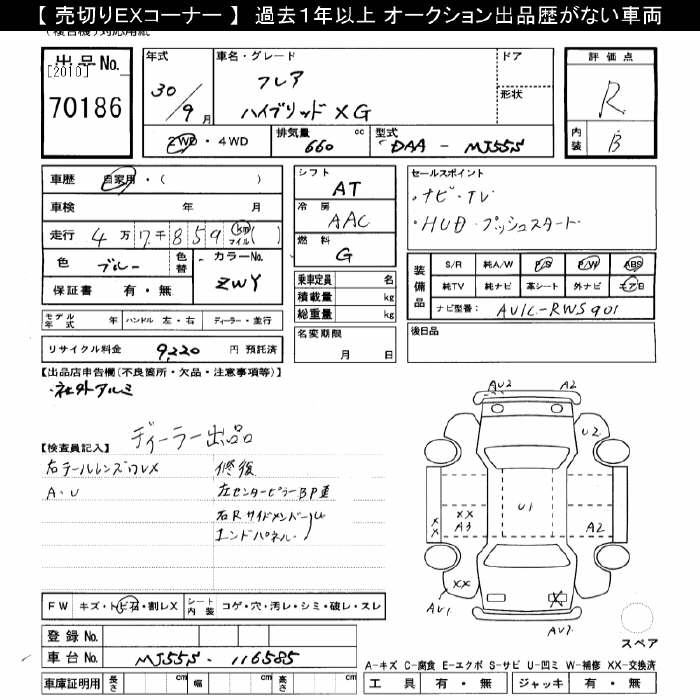 【 売切りEXコーナー 】 過去１年以上 オークション出品歴がない車両
出品No.
[2010]
70186
年式
30/9月
車名・グレード
フレア
ハイブリッド XG
ドア
形状
評価点
R
内装
B
2WD・4WD
排気量
660
cc
型式
DAA - MJ55S
車歴 自家用・( )
車検 年 月
走行 4万7千859 km マイル ( )
色 ブルー
色替
カラーNo.
ZWY
保証書 有・無
シフト
AT
冷房
AAC
燃料
G
乗車定員 名
積載量 kg
総重量 kg
セールスポイント
・ナビ・TV
・HUD・プッシュスタート
装備品
S/R 純A/W P/S P/W ABS
純TV 純ナビ 革シート 外ナビ エアB
ナビ型番: AVIC-RWS901
モデル年式 年 ハンドル 左・右 ディーラー・並行
リサイクル料金 9,220 円 預託済
名変期限
月 日
後日品
【出品店申告欄(不良箇所・欠品・注意事項等)】
・社外アルミ
ディーラー出品
【検査員記入】
右テールレンズワレX
A・U
修復
左センターピラーBP歪
右Rサイドメンバー
エンドパネル
AU2
A2
U2
U1
XX
XX
A3
A2
XX
AU1
X
AU2
スペア
FW キズ・トビ石・割レX
シート内装 コゲ・穴・汚レ・シミ・破レ・スレ
登録No.
車台No. MJ55S - 116585
車庫証明用 長さ cm 幅 cm 高さ cm
A-キズ C-腐食 E-エクボ S-サビ U-凹ミ W-補修 XX-交換済
工具 有・無 ジャッキ 有・無